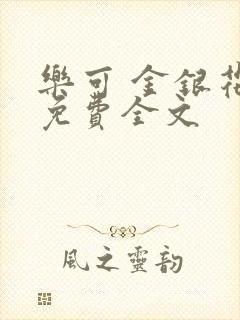 樂可 金銀花
免費全文
風之靈韵